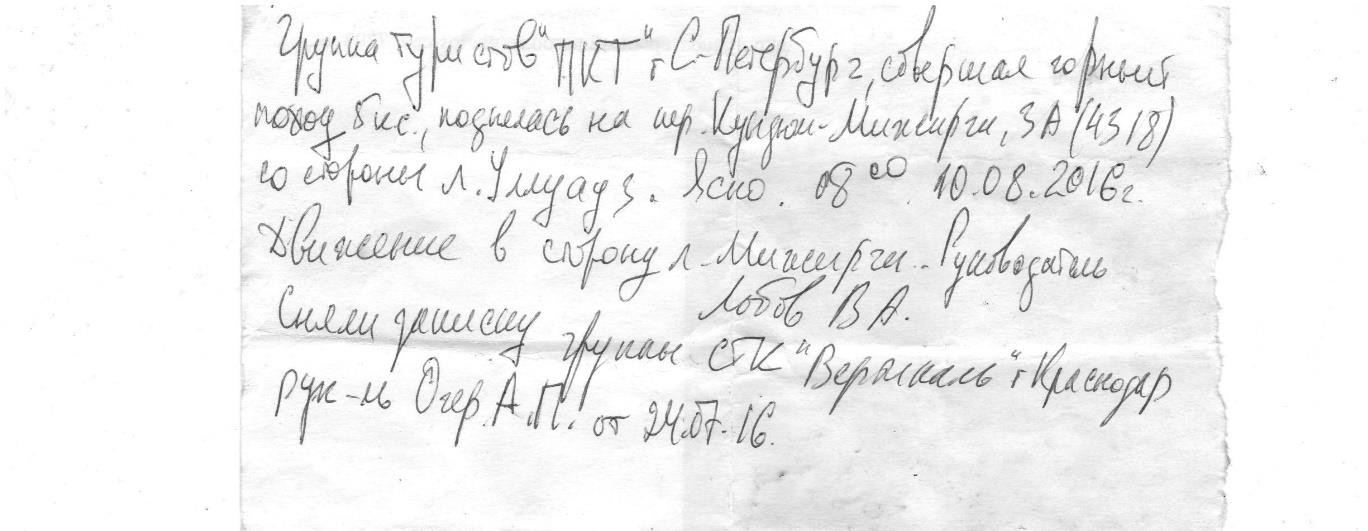 Группа туристов "ПКТ" г С-Петербург, совершая горный
поход 5 кс., поднялась на пер. Кундюм-Мижирги, 3А (4318)
со стороны л. Уллуауз. Ясно. 08 00 10.08.2016г.
Движение в сторону л. Мижирги. Руководитель
Лобов В А.
Сняли записку группы СТК "Вертикаль" г Краснодар
рук-ль Огер А.П. от 24.07.16.